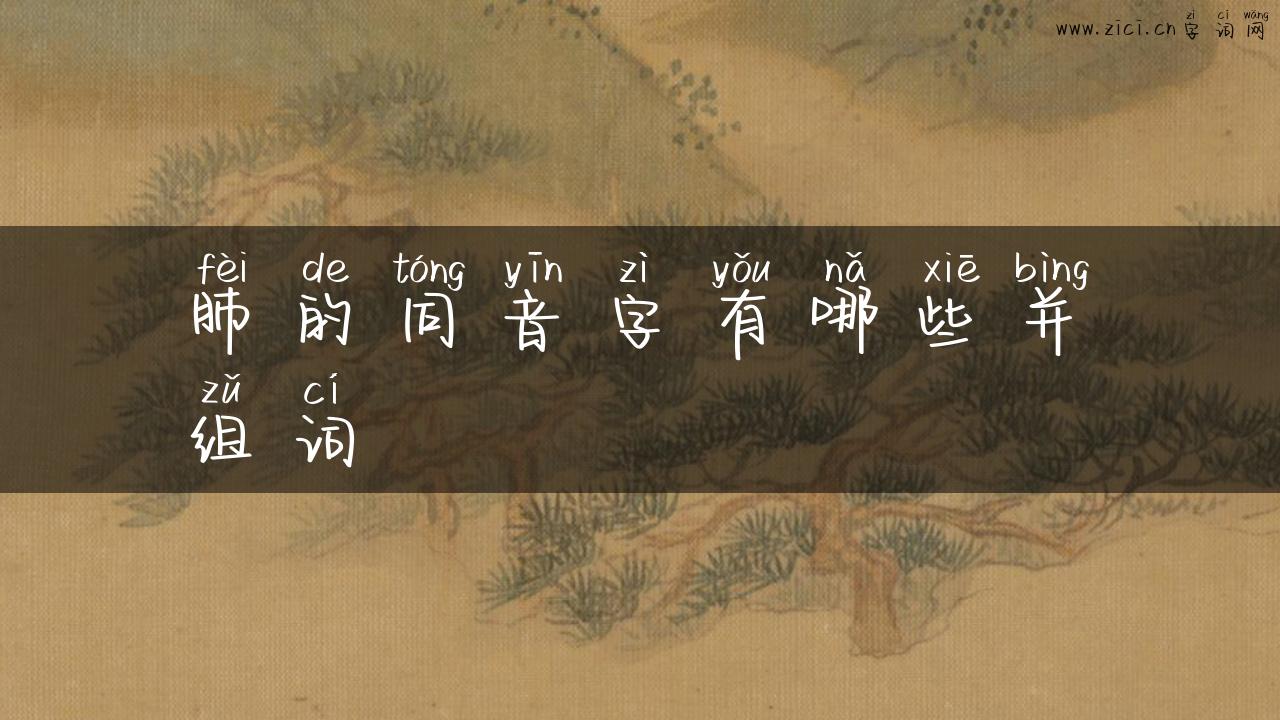 zì cí wǎng
www.zici.cn 字 词 网
fèi de tóng yīn zì yǒu nǎ xiē bìng
肺 的 同 音 字 有 哪 些 并
zǔ cí
组 词